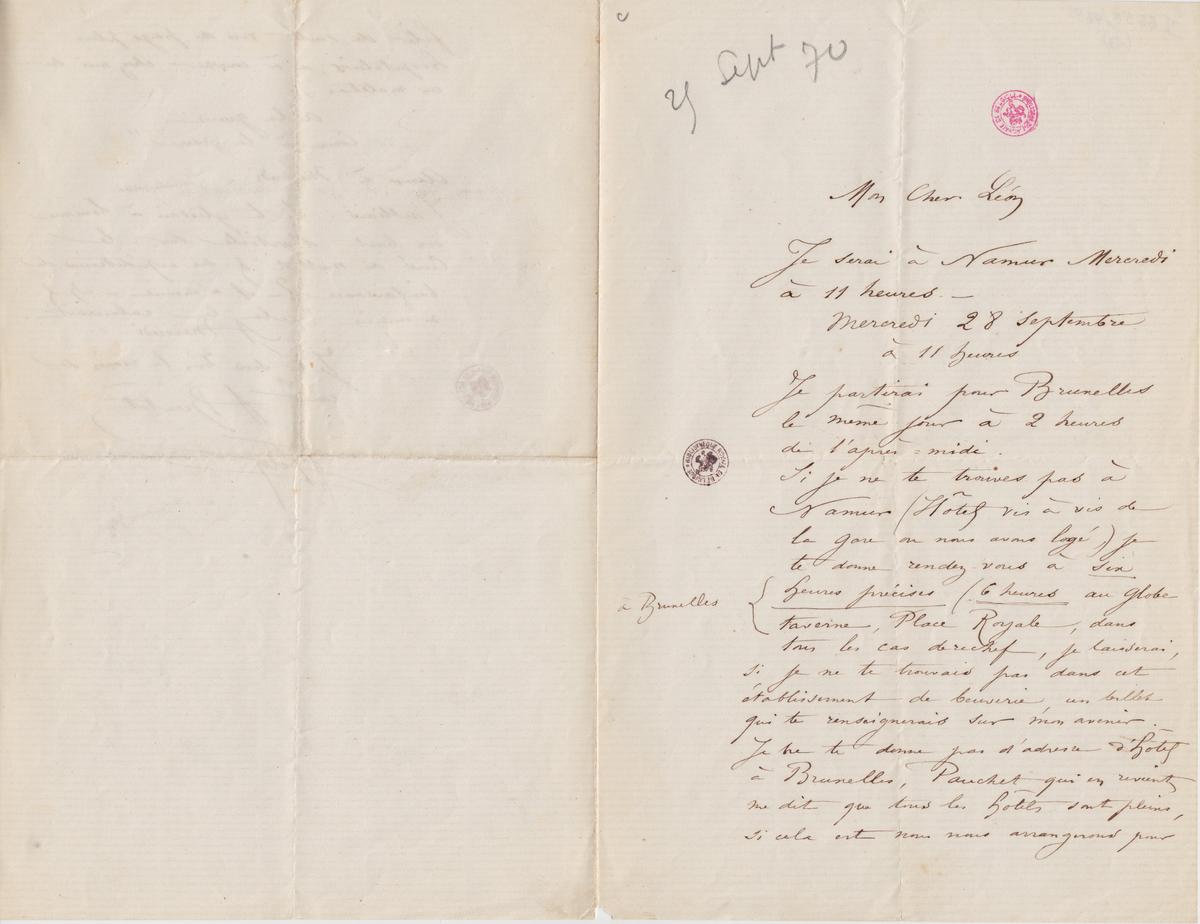 25 Sept 70
Mon Cher Léon
Je serai à Namur Mercredi
à 11 heures. —
Mercredi 28 Septembre
à 11 heures
Je partirai pour Brunelles
le même jour à 2 heures
de l'après=midi.
Si je ne te trouves pas à
Namur (Hôtel vis à vis de
la gare ou nous avons logé) je
te donne rendez vous à six
heures précises (6 heures au Globe
à Brunelles
taverne, Place Royale, dans
tous les cas derechef, je laisserai,
si je ne te trouvais pas dans cet
établissement de beuverie, un billet
qui te renseignerais sur mon avenir.
Je ne te donne pas d'adresse d'Hôtel
à Brunelles, Pauchet qui en revient
me dit que tous les hôtels sont pleins,
si cela est nous nous arrangerons pour